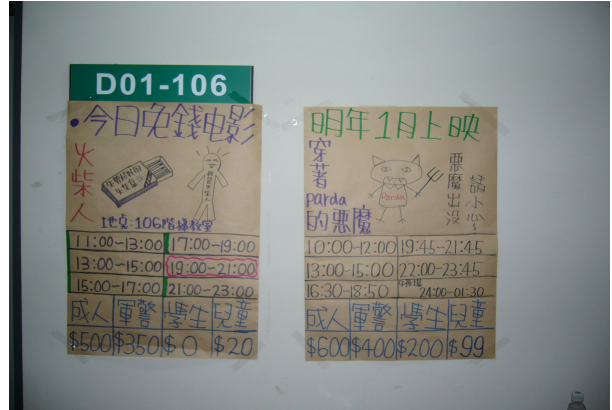 D01-106
•今日免錢电影
火柴人
地点:106階梯教室
11:00~13:00 17:00~19:00
13:00~15:00 19:00~21:00
15:00~17:00 21:00~23:00
成人 軍警 學生 兒童
$500 $350 $0 $20
明年1月上映
穿著
parda
的惡魔
Parda
惡魔出没
請小心~
10:00~12:00 19:45~21:45
13:00~15:00 22:00~23:45
16:30~18:50 午夜場 24:00~01:30
成人 軍警 學生 兒童
$600 $400 $200 $99